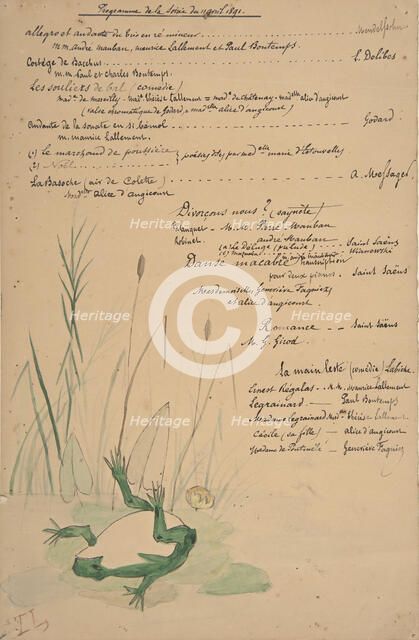 Programme de la Soirée du 11 avril 1891.
allegro et andante du trio en ré mineur ........ Mendelssohn
m.m. andré Mauban, maurice Lallement et Paul Bontemps.
Cortège de Bacchus ........ L. Delibes
m.m. Paul et Charles Bontemps.
Les souliers de bal (comédie)
(valse chromatique de Godard, alice d'angicourt)
andante de la sonate en si bémol ........ Godard
m. maurice Lallement.
(1) Le marchand de poussière
(2) Noël
poésies dites par marie
La Basoche (air de Colette) ........ A. Messager
alice d'angicourt
Divorçons nous? (saynète)
Pierre Mauban
Robinet andré Mauban
(a) Le déluge (prélude) ... Saint Saëns
(b) mazurka Wianowski
Danse macabre transcription
pour deux pianos. Saint Saëns
Mesdemoiselles Geneviève Fagniez
et alice d'angicourt.
Romance -- Saint Saëns
M. G. Girod.
La main leste (comédie) Labiche.
Ernest Régalas -- M. Maurice Lallement
Legrainard -- Paul Bontemps
Madame Legrainard thérèse Lallement
Cécile (sa fille) -- alice d'angicourt
Madame de Geneviève Fagniez
Heritage
Images
©